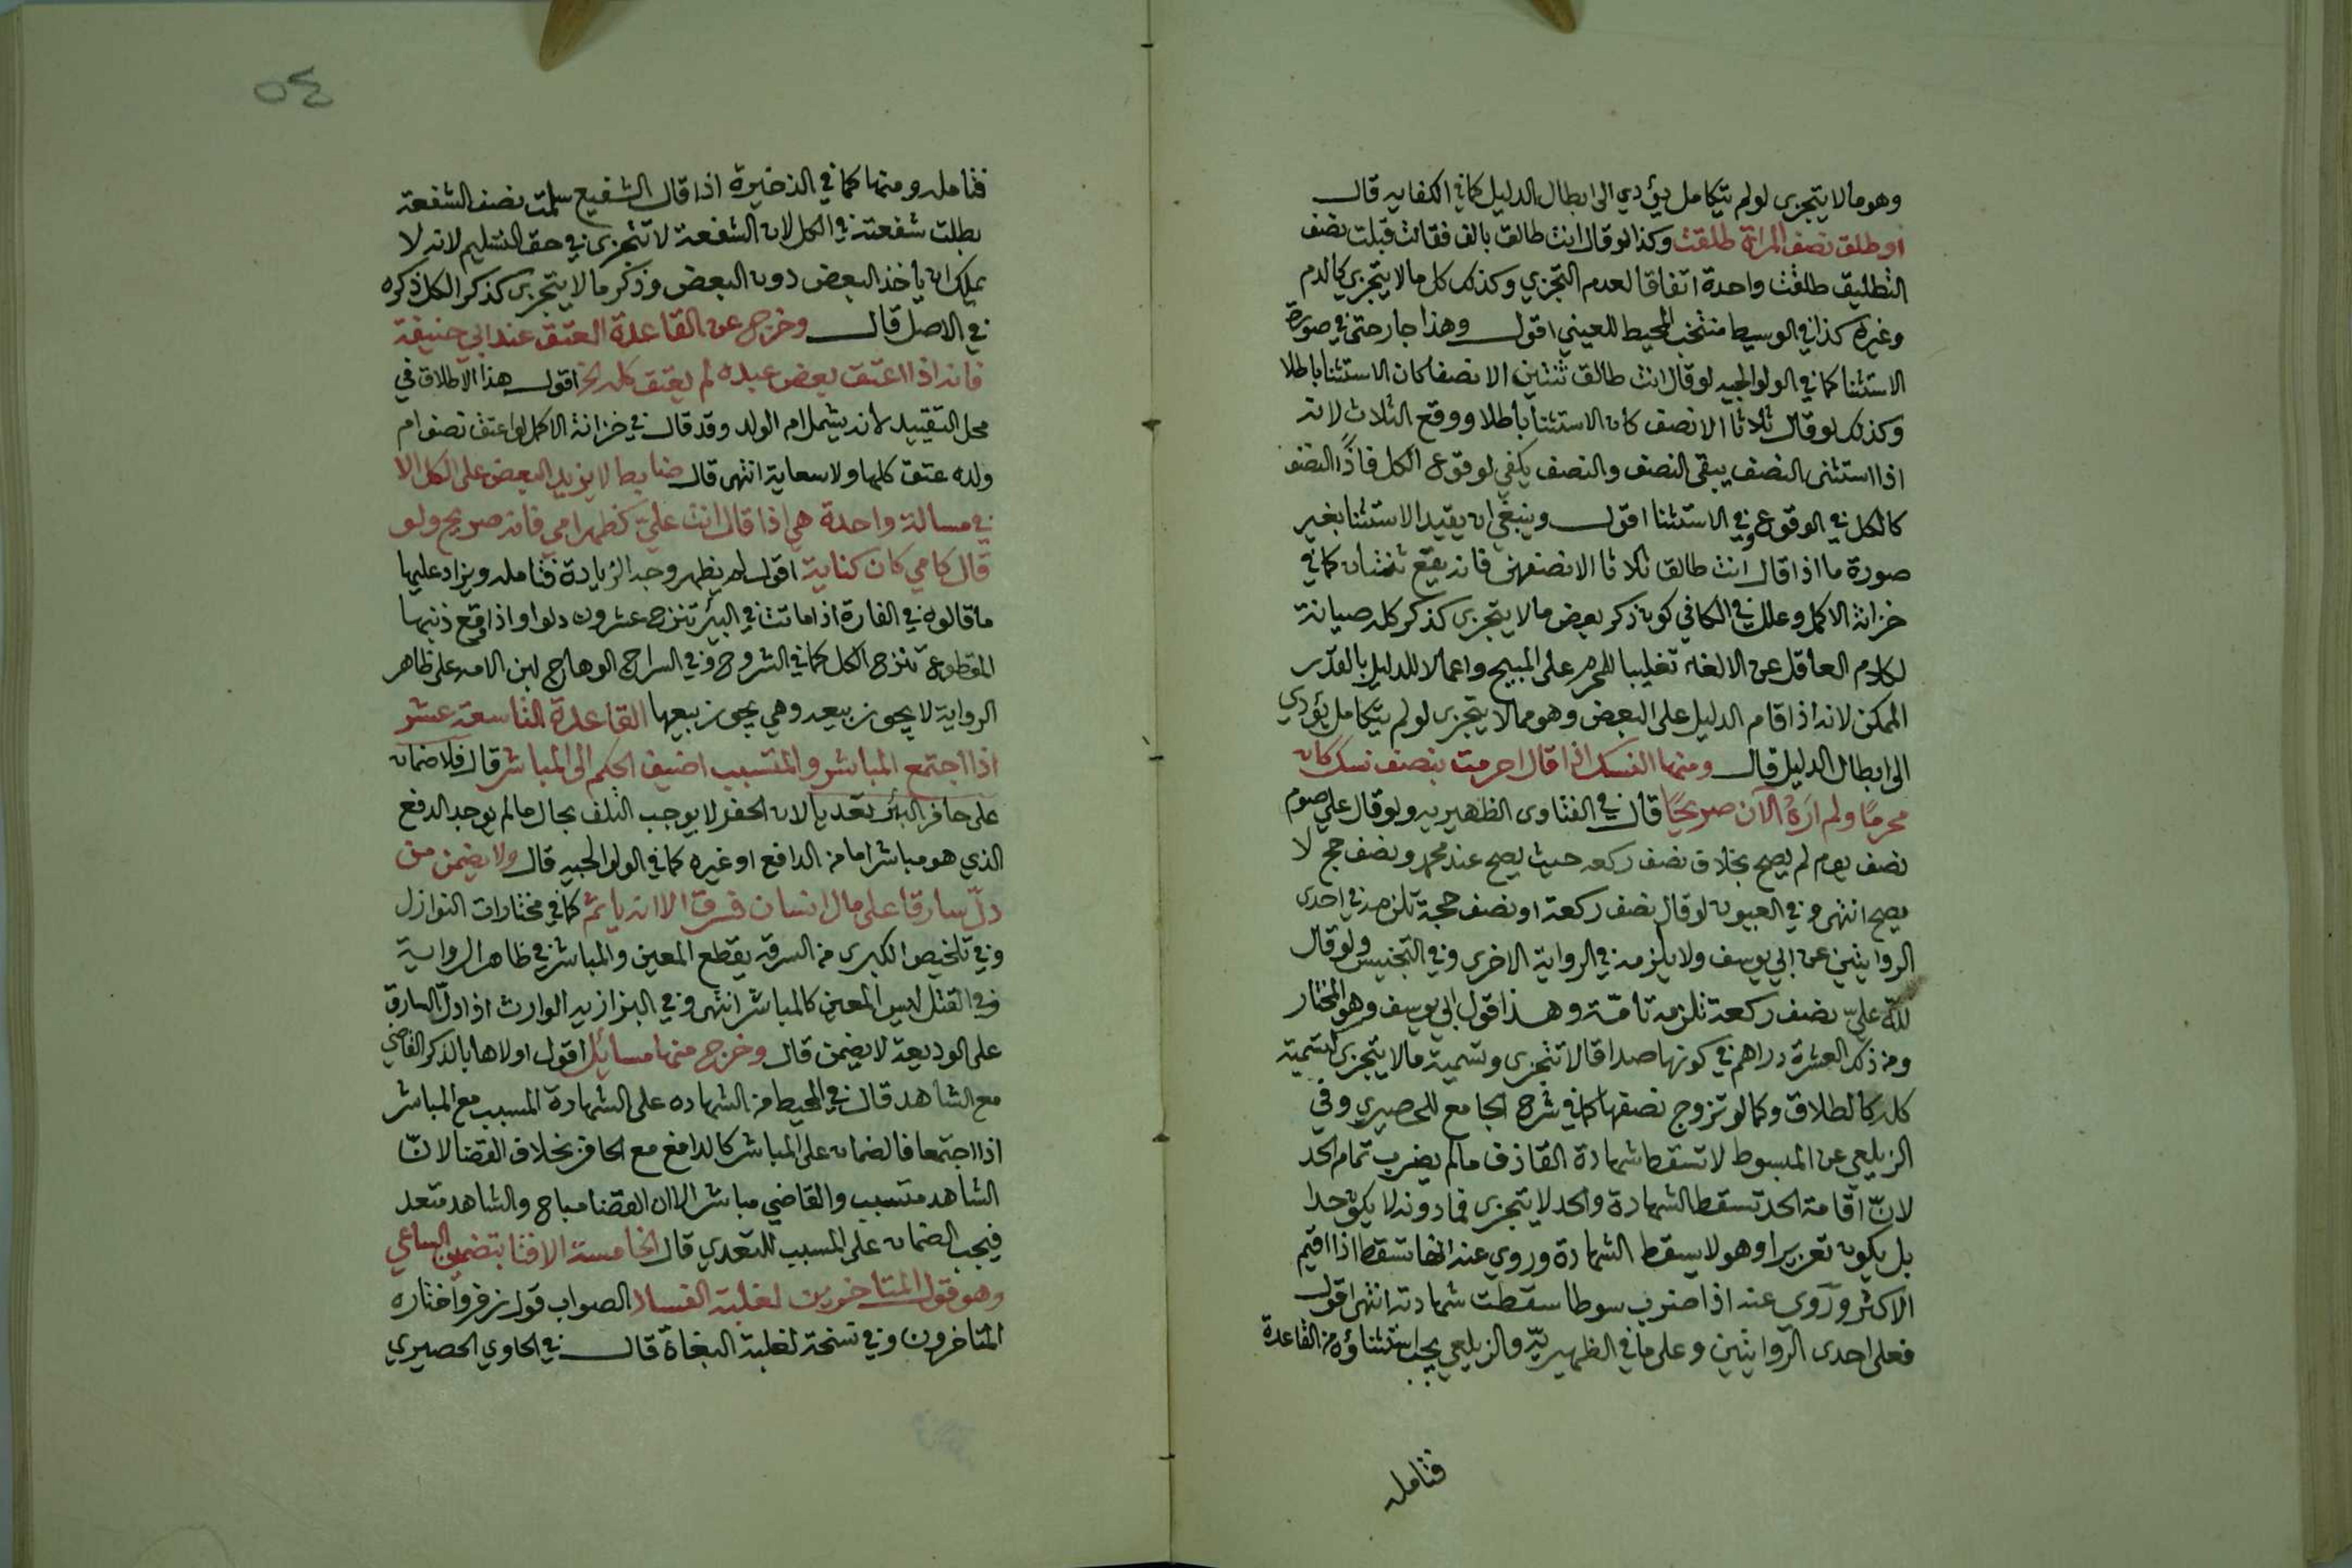 وهو مالا يتجزى لولم يتكامل يؤدي الى ابطال الدليل كما في الكفايه قال
او طلق نصف المراة طلقت وكذا لو قال انت طالق بالف فقالت قبلت نصف
التطليق طلقت واحدة اتفاقا لعدم التجزي وكذلك كل مالا يتجزي كالدم
وغيره كذا في الوسيط منتخب المحيط للعيني اقول وهذا جار حتى في صورة
الاستثنا كما في الولوالجيه لو قال انت طالق ثنتين الا نصفا كان الاستثنا باطلا
وكذلك لو قال ثلاثا الا نصف كان الاستثنا باطلا ووقع الثلاث لانه
اذا استثنى النصف يبقى النصف والنصف يكفي لوقوع الكل فاذًا النصف
كالكل في الوقوع وفي الاستثنا اقول وينبغي ان يقيد الاستثنا بغير
صورة ما اذا قال انت طالق ثلاثا الا نصفهن فانه يقع ثنتان كما في
خزانة الاكمل وعلله في الكافي كون ذكر بعض مالا يتجزى كذكر كله صيانة
لكلام العاقل عن الالغاء تغليبا للمحرم على المبيح واعمالا للدليل بالقدر
الممكن لانه اذا قام الدليل على البعض وهو مما لا يتجزى لولم يتكامل يؤدي
الى ابطال الدليل قال ومنها النسك اذا قال احرمت بنصف نسك كان
محرمًا ولم ارَهُ الآن صريحًا قال في الفتاوى الظهيريه ولو قال علي صوم
نصف يوم لم يصح بخلاف نصف ركعه حيث يصح عند محمد ونصف حج لا
يصح انتهى وفي العيون لو قال نصف ركعة او نصف حجة تلزمه في احدى
الروايتين عن ابي يوسف ولا يلزمه في الرواية الاخرى وفي التجنيس ولو قال
لله عليّ نصف ركعة تلزمه تامّة وهذا قول ابي يوسف وهو المختار
ومن ذلك العشرة دراهم في كونها صداقا لا تتجزى وتسمية مالا يتجزى كتسمية
كله كالطلاق وكما لو تزوج نصفها كما في شرح الجامع للحصيري وفي
الزيلعي عن المبسوط لا تسقط شهادة القاذف مالم يضرب تمام الحد
لانّ اقامة الحد تسقط الشهادة والحد لا يتجزى فما دونه لا يكون حدا
بل يكون تعزيرا وهو لا يسقط الشهادة وروي عنه انها تسقط اذا اقيم
الاكثر وروي عنه اذا ضرب سوطا سقطت شهادته انتهى اقول
فعلى احدى الروايتين وعلى ما في الظهيريّه والزيلعي يجب استثناؤه من القاعدة
فتامله
٥٤
فتامله ومنها كما في الذخيرة اذا قال الشفيع سلمت نصف الشفعة
بطلت شفعته في الكل لان الشفعة لا تتجزى في حق التسليم لانه لا
يملك ان ياخذ البعض دون البعض وذكر مالا يتجزى كذكر الكل ذكره
في الاصل قال وخرج عن القاعدة العتق عند ابي حنيفة
فانه اذا اعتق بعض عبده لم يعتق كله الخ اقول هذا الاطلاق في
محل التقييد لانه يشمل ام الولد وقد قال في خزانة الاكمل لو اعتق نصف ام
ولده عتق كلها ولا سعاية انتهى قال ضابط لا يزيد البعض على الكل الا
في مسالة واحدة هي اذا قال انت عليّ كظهر امي فانه صريح ولو
قال كامي كان كناية اقول لم يظهر وجه الزيادة فتامله ويزاد عليها
ما قالوه في الفارة اذا ماتت في البئر تنزح عشرون دلوا واذا وقع ذنبها
المقطوع تنزح الكل كما في الشروح وفي السراج الوهاج لبن الامه على ظاهر
الرواية لا يجوز بيعه وهي يجوز بيعها القاعدة التاسعة عشر
اذا اجتمع المباشر والمتسبب اضيف الحكم الى المباشر قال فلا ضمان
على حافر البئر تعديا لان الحفر لا يوجب التلف بحال مالم يوجد الدفع
الذي هو مباشر امامن الدافع او غيره كما في الولوالجيه قال ولا يضمن من
دلّ سارقا على مال انسان فسرق الا انه ياثم كما في مختارات النوازل
وفي تلخيص الكبرى من السرقه يقطع المعين والمباشر في ظاهر الرواية
وفي القتل ليس المعين كالمباشر انتهى وفي البزازيه الوارث اذا دل السارق
على الوديعة لا يضمن قال وخرج منها مسائل اقول اولاها بالذكر القاضي
مع الشاهد قال في المحيط من الشهاده على الشهادة المسبب مع المباشر
اذا اجتمعا فالضمان على المباشر كالدافع مع الحافر بخلاف القضا لانّ
الشاهد متسبب والقاضي مباشر الا ان القضا مباح والشاهد متعد
فيجب الضمان على المسبب للتعدي قال الخامسة الافتا بتضمين الساعي
وهو قول المتاخرين لغلبة الفساد الصواب قول زفر واختاره
المتاخرون وفي نسخة لغلبة البغاة قال في الحاوي الحصيري